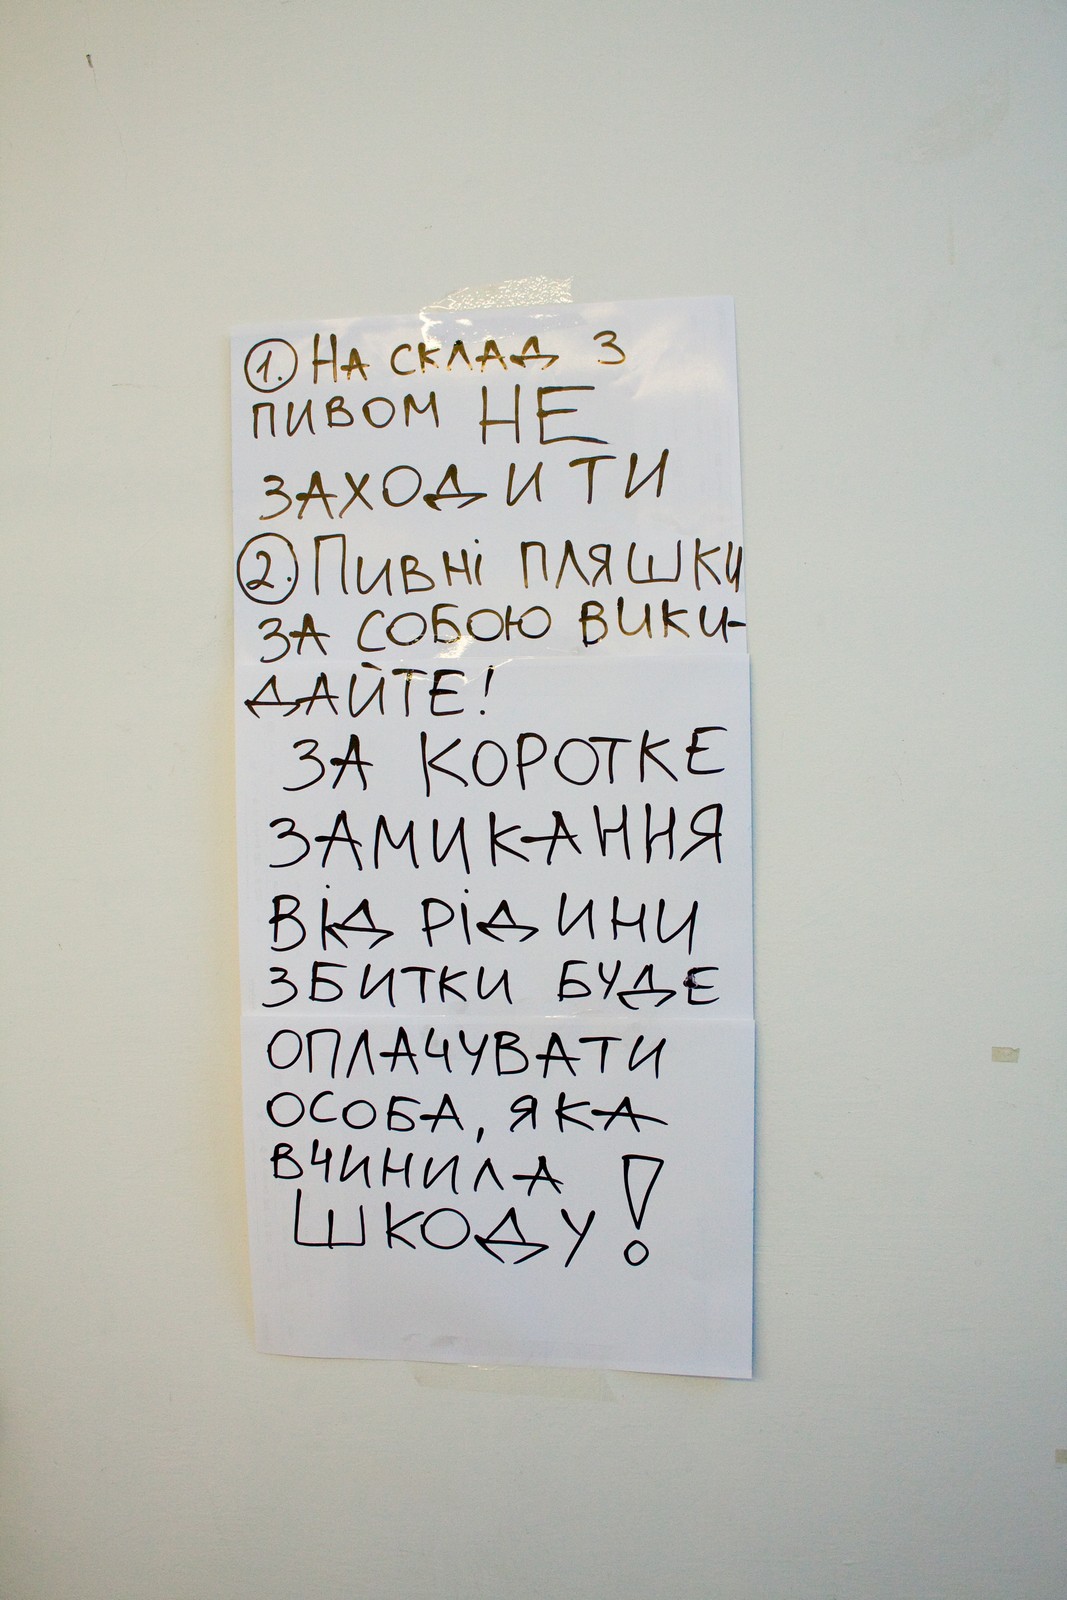 1. На склад з
пивом НЕ
заходити
2. Пивні пляшки
за собою вики-
дайте!
За коротке
замикання
від рідини
збитки буде
оплачувати
особа, яка
вчинила
шкоду!